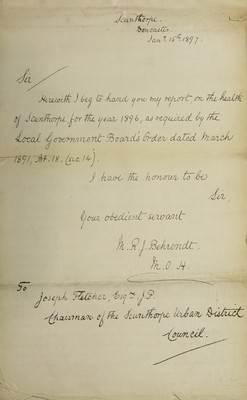 Scunthorpe.
Doncaster.
Jany 15th 1897.
Sir
Herewith I beg to hand you my report on the health
of Scunthorpe for the year 1896, as required by the
Local Government Board's Order dated March
1891, Art. 18. (Sec 14).
I have the honour to be
Sir,
Your obedient servant
M. R. J. Behrendt.
M. O. H.
To
Joseph Fletcher, Esqre J.P.
Chairman of the Scunthorpe Urban District
Council.